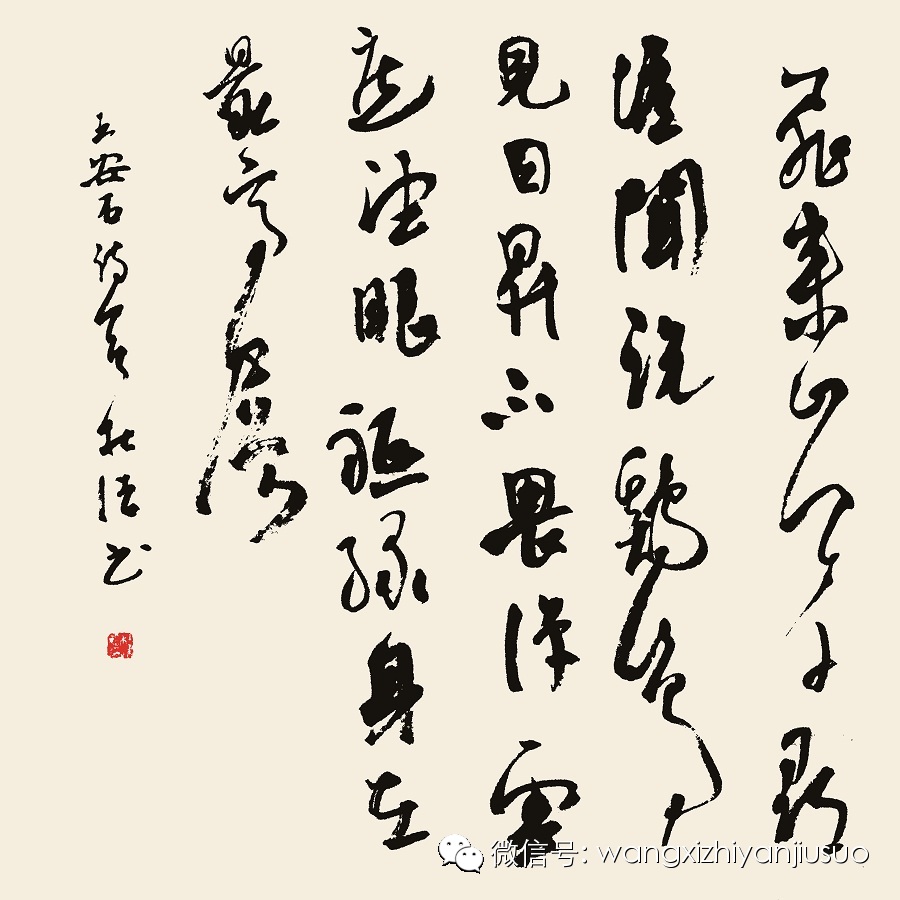 飛來山上千尋
塔聞說鷄鳴
見日昇不畏浮雲
遮望眼祗緣身在
最高層
王安石詩 书
微信号: wangxizhiyanjiusuo